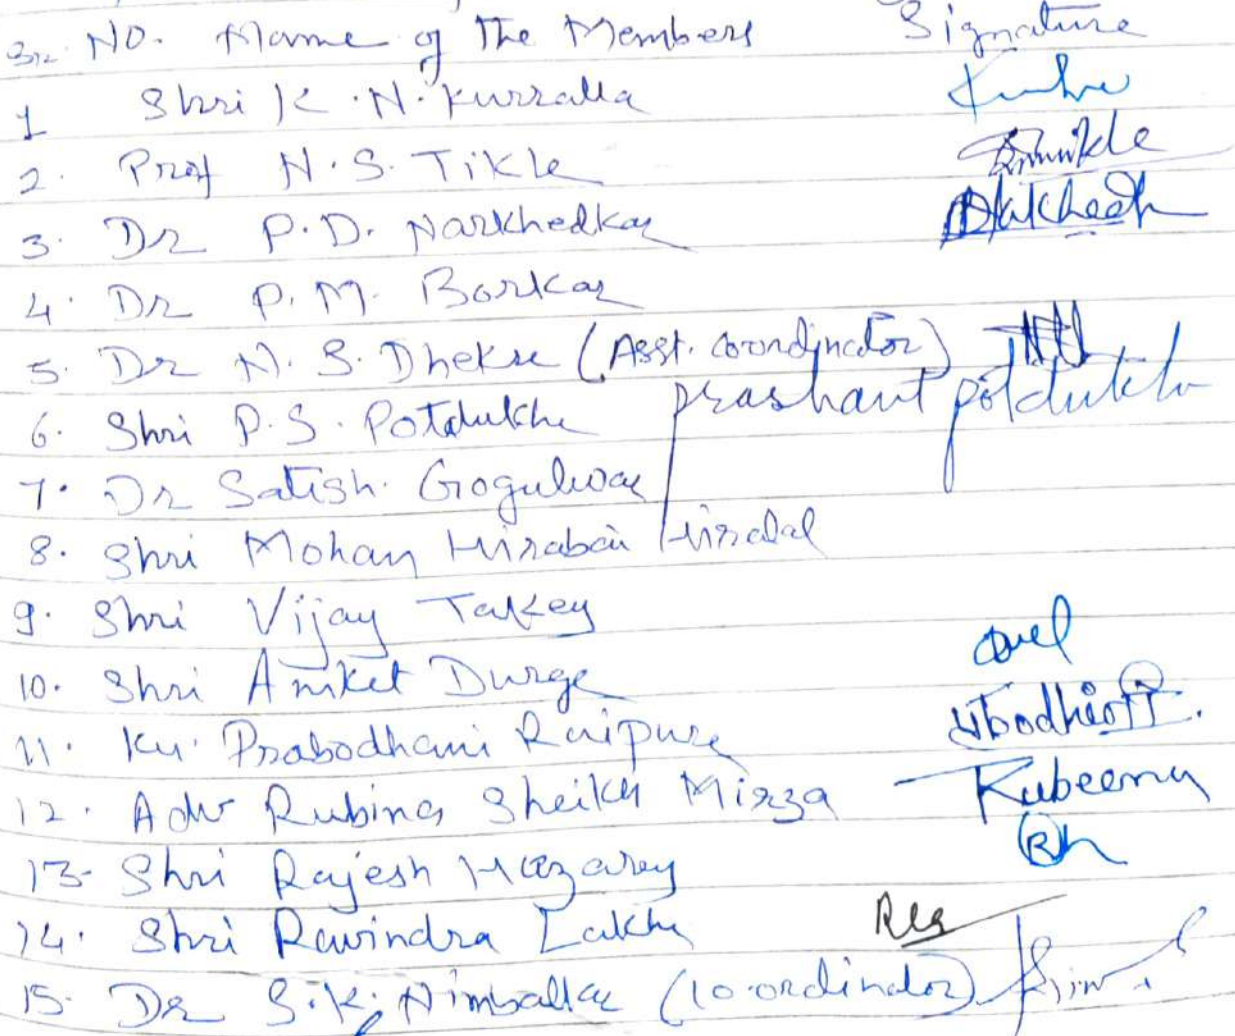 Sr. No. Name of The Members Signature
1 Shri K.N. Kurzalla
2. Prof N.S. Tikle
3. Dr P.D. Narkhedkar
4. Dr P.M. Borkar
5. Dr N.S. Dhekse (Asst. coordinator)
6. Shri P.S. Potdukhe prashant potdukhe
7. Dr Satish Gogulwar
8. Shri Mohan Hirabai Hiralal
9. Shri Vijay Takey
10. Shri Aniket Durge
11. Ku. Prabodhani Raipure
12. Adv Rubina Sheikh Mirza Rubeena
13- Shri Rajesh Hazarey
14. Shri Ravindra Lakhe
15- Dr S.K. Nimbalkar (Co-ordinator)